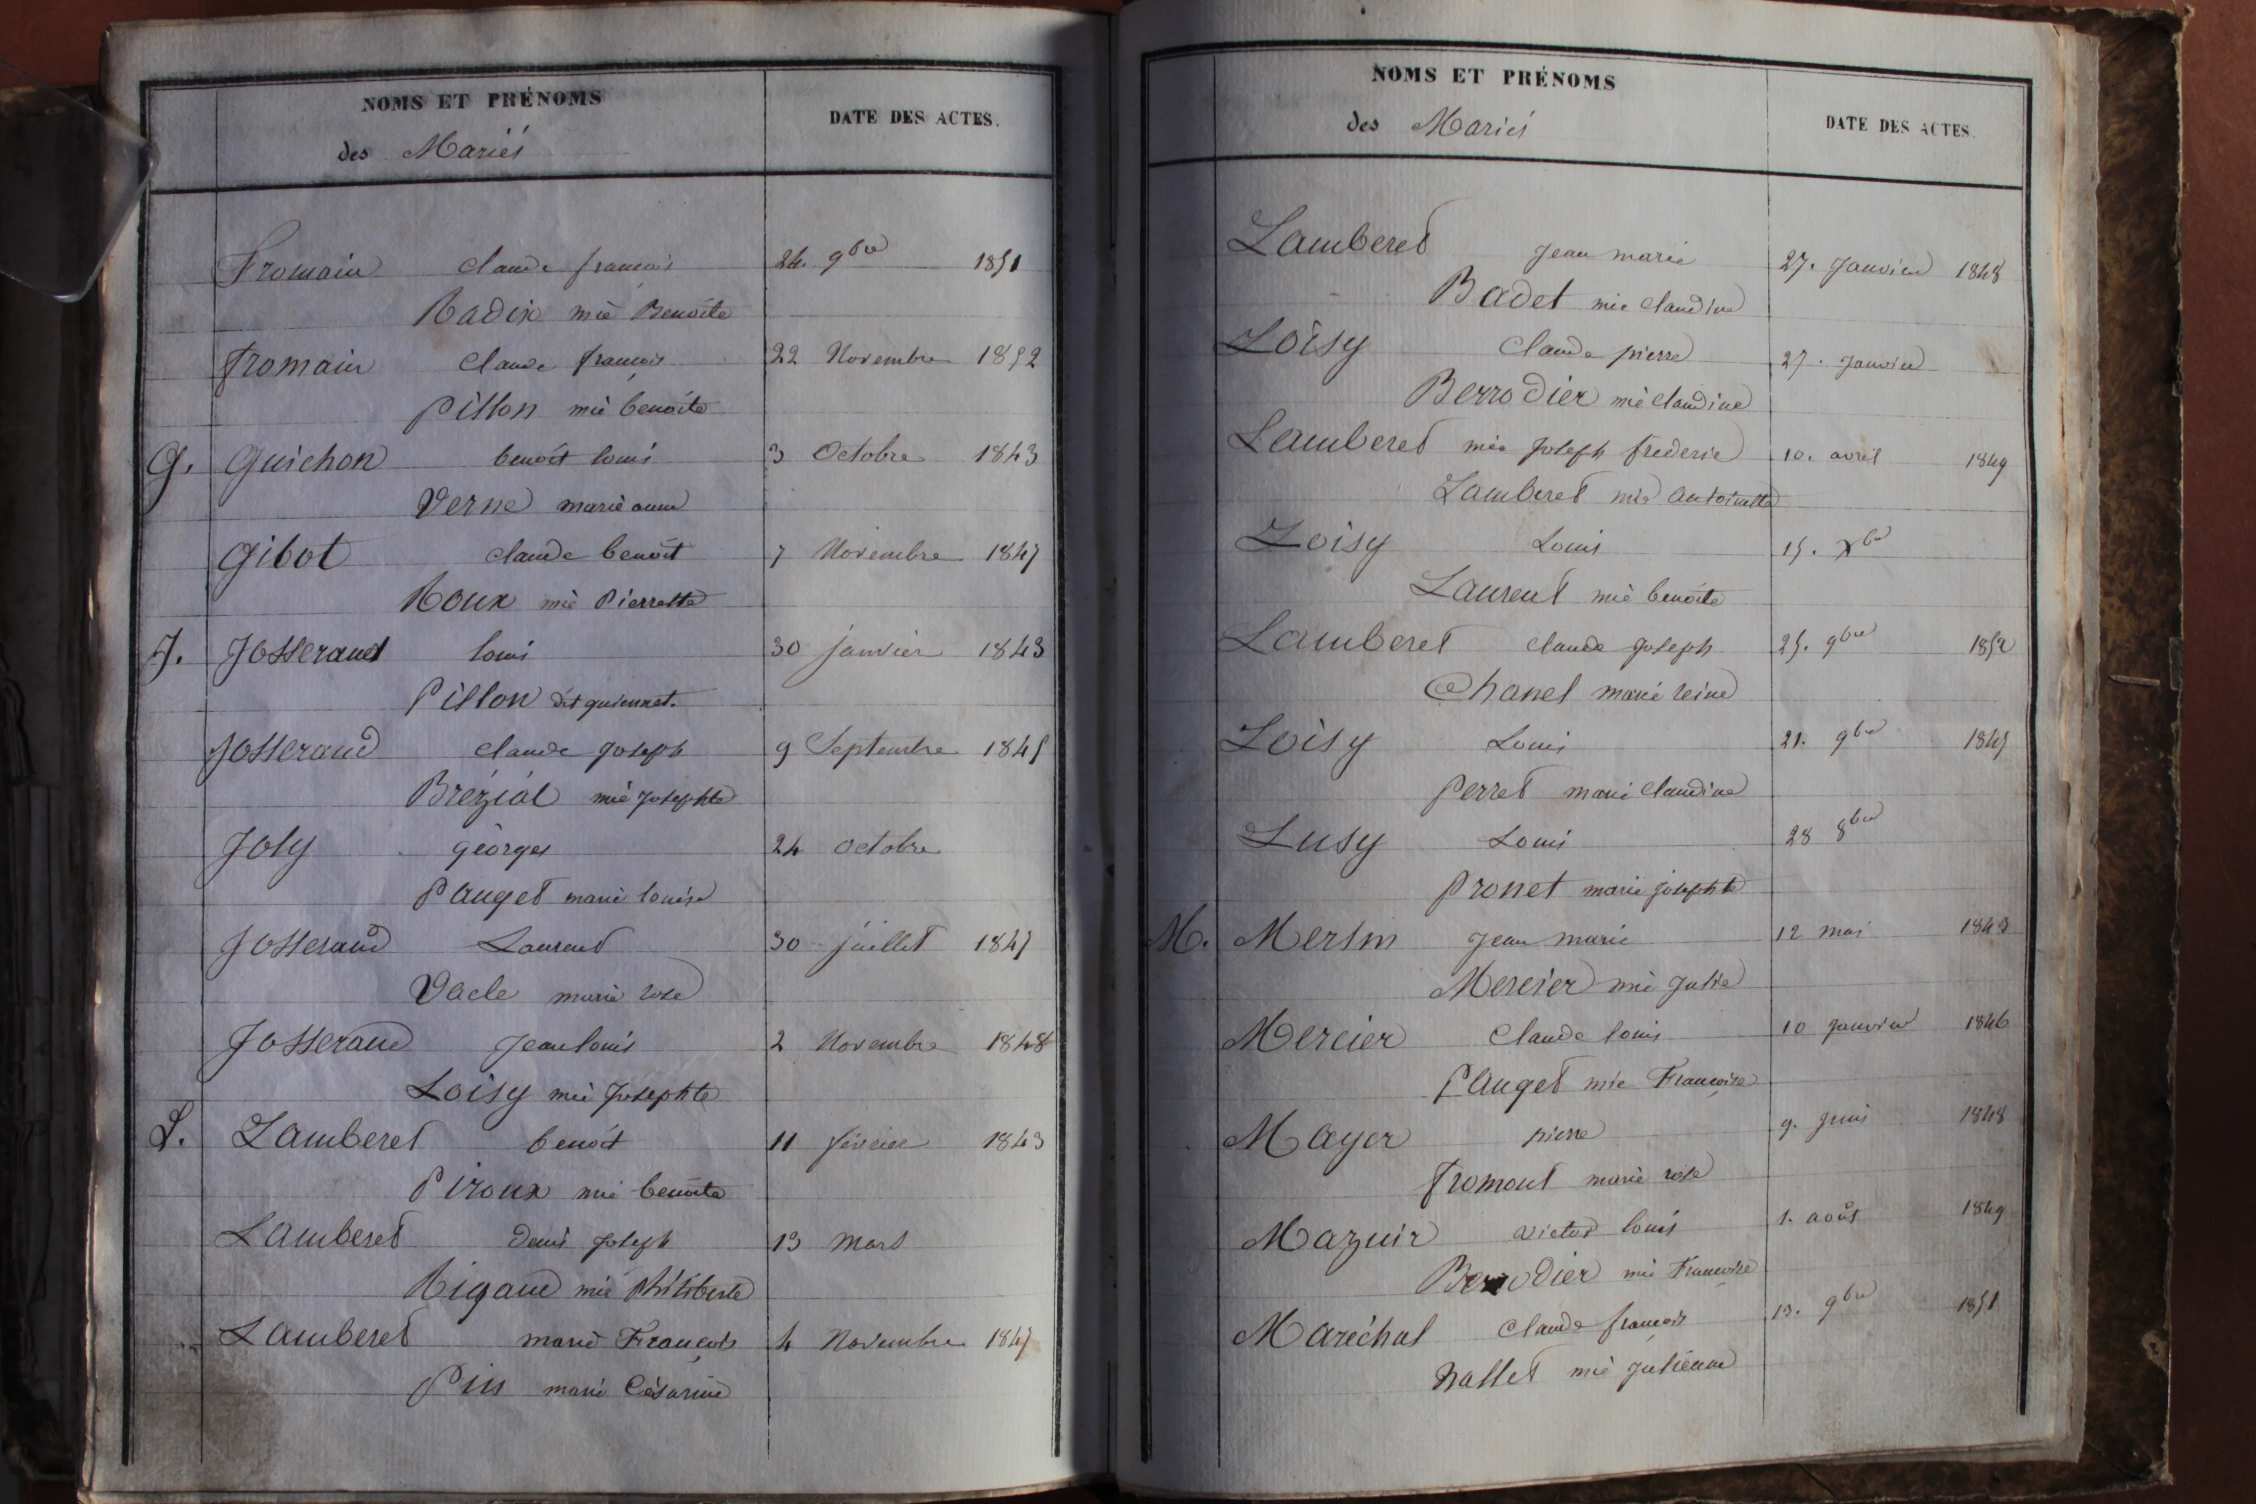 NOMS ET PRÉNOMS
des Mariés
DATE DES ACTES.
Fromain claude françois 24 9bre 1851
Radix mie Benoite
fromain claude françois 22 Novembre 1852
Pillon mie benoite
G. Guichon benoit louis 3 Octobre 1843
Verne marie anne
Gibot claude benoit 7 Novembre 1847
Roux mie Pierrette
J. Josserand louis 30 janvier 1843
Pillon dit quiennet.
Josserand claude joseph 9 Septembre 1845
Brézial mie josephte
Joly géorges 24 octobre
Pauget marie louise
Josserand Laurent 30 juillet 1847
Vacle marie rose
Josserand Jean louis 2 Novembre 1848
Loisy mie Josephte
L. Lamberet benoit 11 février 1843
Piroux mie benoite
Lamberet denis joseph 13 mars
Rigaud mie Philiberte
Lamberet marie François 4 Novembre 1847
Pin marie Césarine
NOMS ET PRÉNOMS
des Mariés
DATE DES ACTES.
Lamberet Jean marie 27. Janvier 1848
Badet mie claudine
Loisy Claude pierre 27. Janvier
Berrodier mie claudine
Lamberet mie Joseph frederic 10. avril 1849
Lamberet mie antoinette
Loisy Louis 15. Xbre
Laurent mie benoite
Lamberet claude Joseph 25. 9bre 1852
Chanel marie reine
Loisy Louis 21. 9bre 1847
Perret marie claudine
Lusy Louis 28 8bre
Pronet marie josephte
M. Jean marie 12 mai 1843
Mercier mie Julie
Mercier Claude louis 10 Janvier 1846
Pauget mie Françoise
Mayer pierre 9. Juin 1848
fromont marie rose
Mazuir victor louis 1. août 1849
Berrodier mie Françoise
Maréchal Claude françois 13. 9bre 1851
Nallet mie julienne